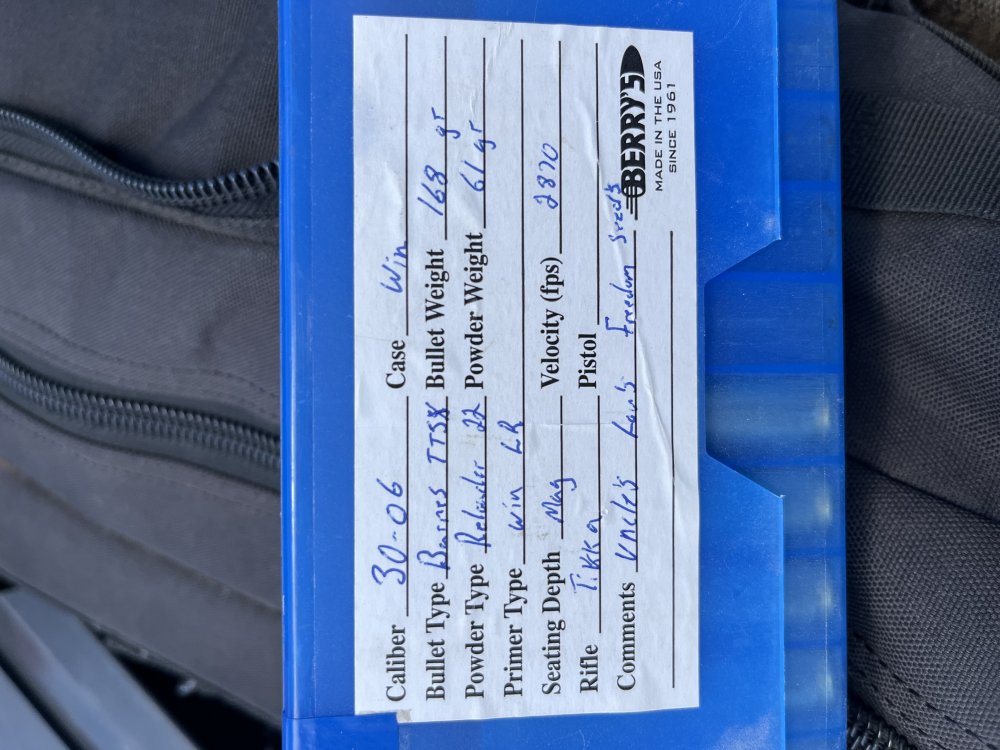 Caliber 30-06 Case Win
Bullet Type Barnes TTSX Bullet Weight 168 gr
Powder Type Reloader 22 Powder Weight 61 gr
Primer Type Win LR
Seating Depth Mag Velocity (fps) 2820
Rifle Tikka Pistol
Comments Uncle's Freedom Seeds
BERRY'S
MADE IN THE USA
SINCE 1961